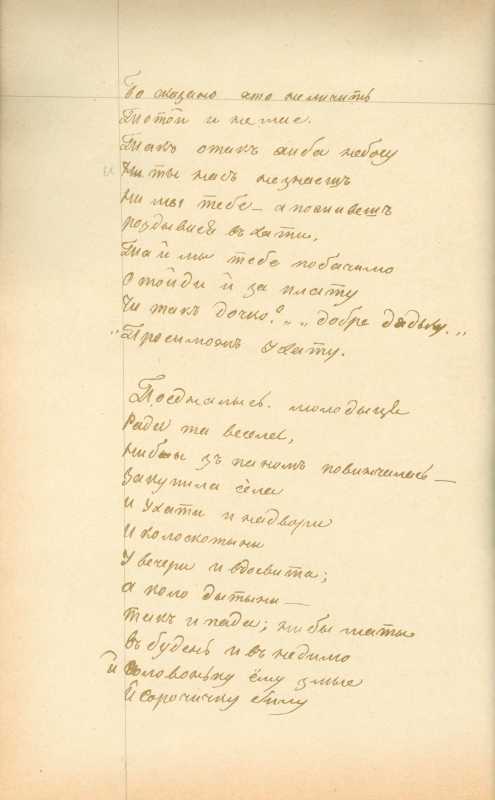 Бо сказано хто неличить
Тиотой и немае.
Такъ отакъ хиба небогу
и ни ты насъ незнаешъ
ни мы тебе — а поживешъ
роздывися въ хати,
Та й мы тебе побачимо
Отойди й за плату
Чи такъ дочко? „ „добре дядьку. „
„Просиможъ ухату.
Поедналысь. молодыця
Рада та весела,
нибы зъ паномъ повинчалась —
Закупила сёла
и ухати и надвори
И колоскотыны
У вечери и вдосвита;
а коло дытыны —
такъ и пада; нибы маты
въ будень и въ недилю
й головоньку ёму змые
й сорочичку билу